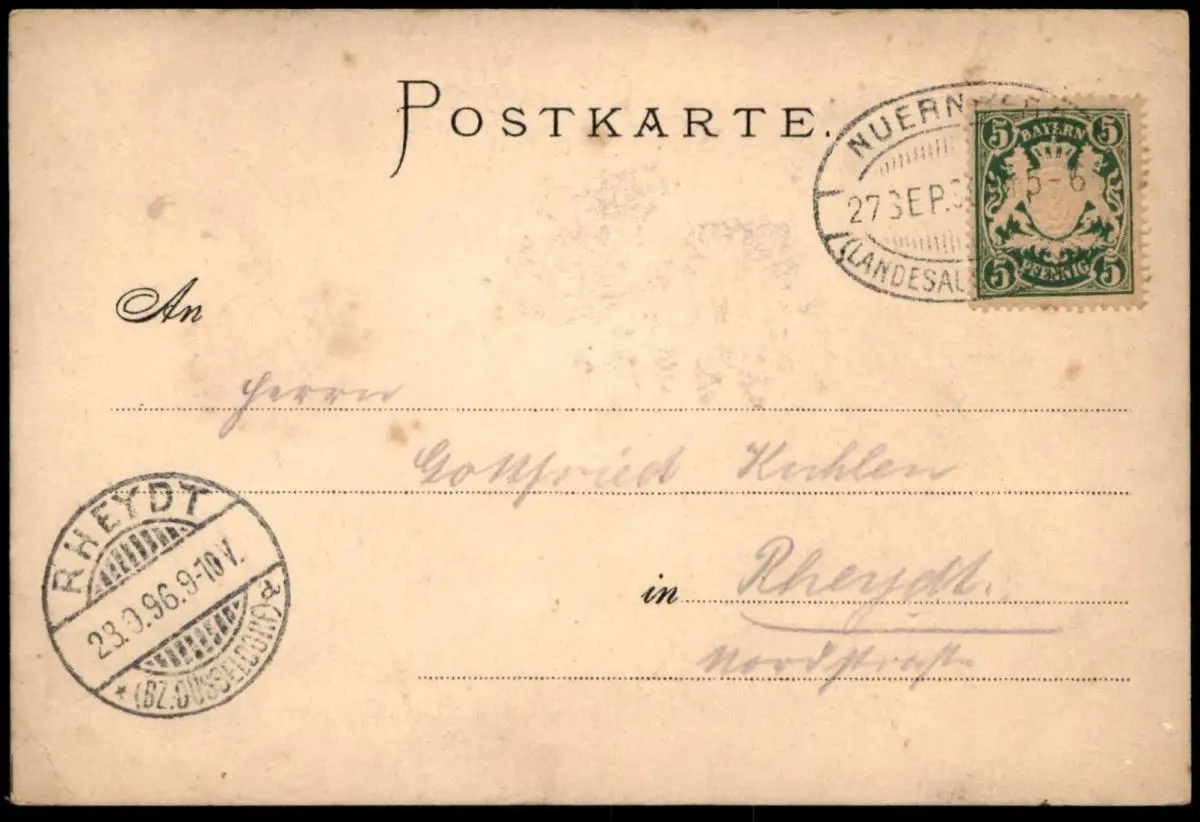 POSTKARTE.
NUERNBERG
27 SEP. 5-6
(LANDESAU
5 BAYERN 5
5 PFENNIG 5
An
Herrn
Gottfried Kuhlen
in Rheydt.
Nordstraße
RHEYDT
28.9.96.9-10V.
* (BZ.DÜSSELDORF) a